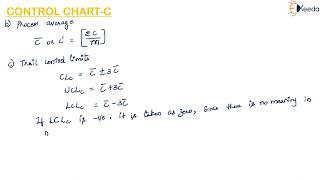 CONTROL CHART-C
Ekeeda
b) Process average
c̄ or c' = [Σc/m]
c) Trail control limits
CLc = c̄ ± 3c̄
UCLc = c̄ + 3c̄
LCLc = c̄ - 3c̄
If LCLc is -ve, it is taken as zero, Since there is no meaning in